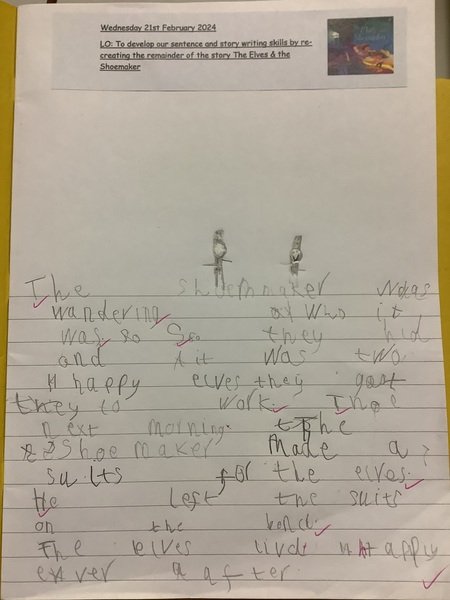 Wednesday 21st February 2024
LO: To develop our sentence and story writing skills by re-
creating the remainder of the story The Elves & the
Shoemaker
The shoemmaker was
wandering who it
was so So they hid
and it was two
happy elves they got
they to work. The
next morning the
Shoe maker made a
suits for the elves.
He left the suits
on the bench.
The elves livd happy
ever after.